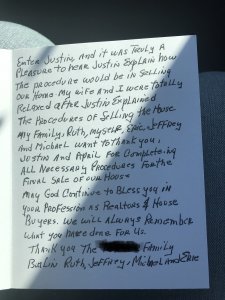 Enter Justin, and it was truly a
pleasure to hear Justin explain how
the procedure would be in selling
our home. My wife and I were totally
relaxed after Justin explained
the procedures of selling the house
My family, Ruth, myself, Eric, Jeffrey
and Michael want to thank you,
Justin and April for completeing
all necessary procedures for the
final sale of our house
May God continue to bless you in
your profession as realtors & house
buyers. We will always remember
what you have done for us.
Thank you The Family
Ruth, Jeffrey, Michael and Eric